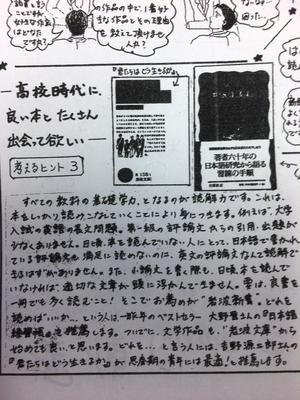 高校時代に、
良い本と たくさん
出会って欲しい
考えるヒント 3
『君たちはどう生きるか』
著者六十年の
日本語研究から語る
習練の手順
すべての教科の基礎学力、となるのが読解力です。これは、
本をしっかり読みこなしていくことにより身につきます。例えば、大学
入試の英語の長文問題。第一級の評論文からの引用・出題が
少なくありません。日頃、本を読んでいない人にとって、日本語で書かれ
ている評論文も満足に読めないのに、英文の評論文なんて読解で
きるはずがありません。また、小論文を書く際も、日頃、本を読んで
いなければ、適切な文章が頭に浮かんできません。要は、良書を
一冊でも多く読むこと! そこでお薦めが“岩波新書”。どれを
読めばいいか…という人は一昨年のベストセラー 大野晋さんの『日本語
練習帳』を推薦します。ついでに、文学作品も、“岩波文庫”から
始めても良い、と思います。どれを…と言う人には、吉野源三郎さんの
『君たちはどう生きるか』が思春期の青年には最適!と推薦します。